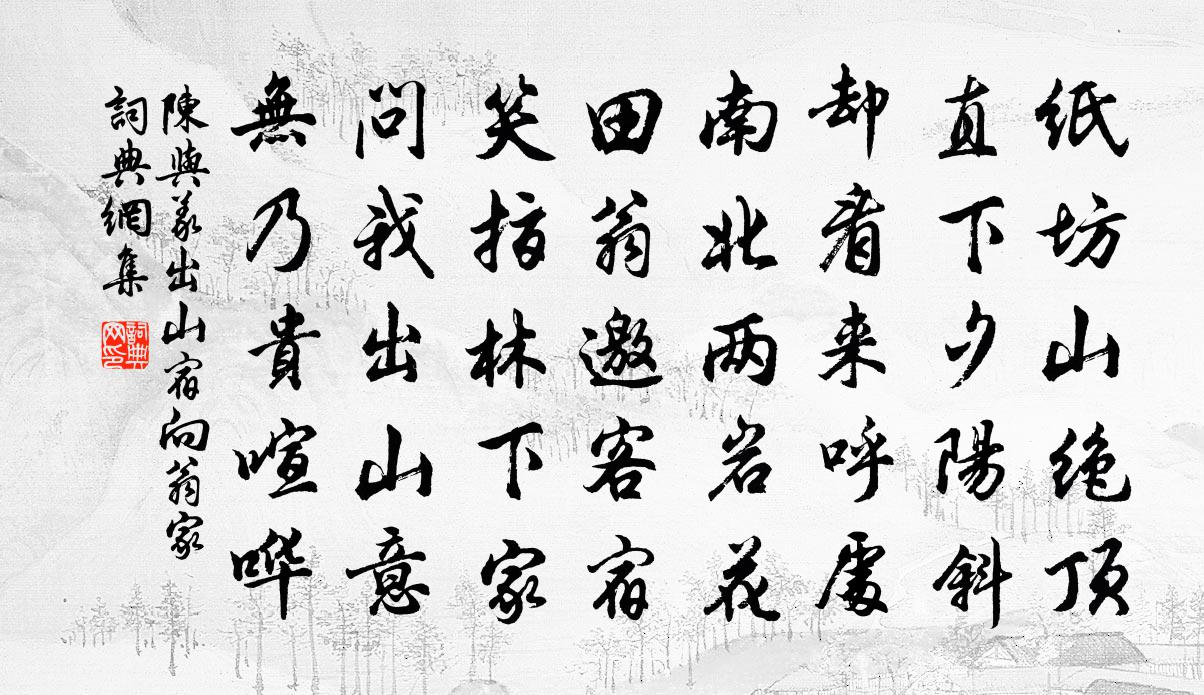 纸坊山绝顶
直下夕陽斜
却看来呼處
南北两岩花
田翁邀客宿
笑指林下家
問我出山意
無乃貴喧哗
陳與義出山宿向翁家
詞典網集
詞典网印